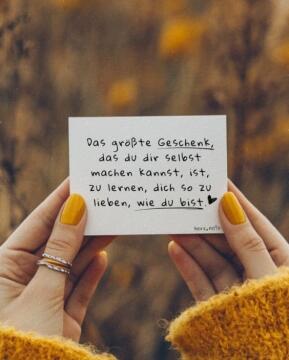 Das größte Geschenk,
das du dir selbst
machen kannst, ist,
zu lernen, dich so zu
lieben, wie du bist.